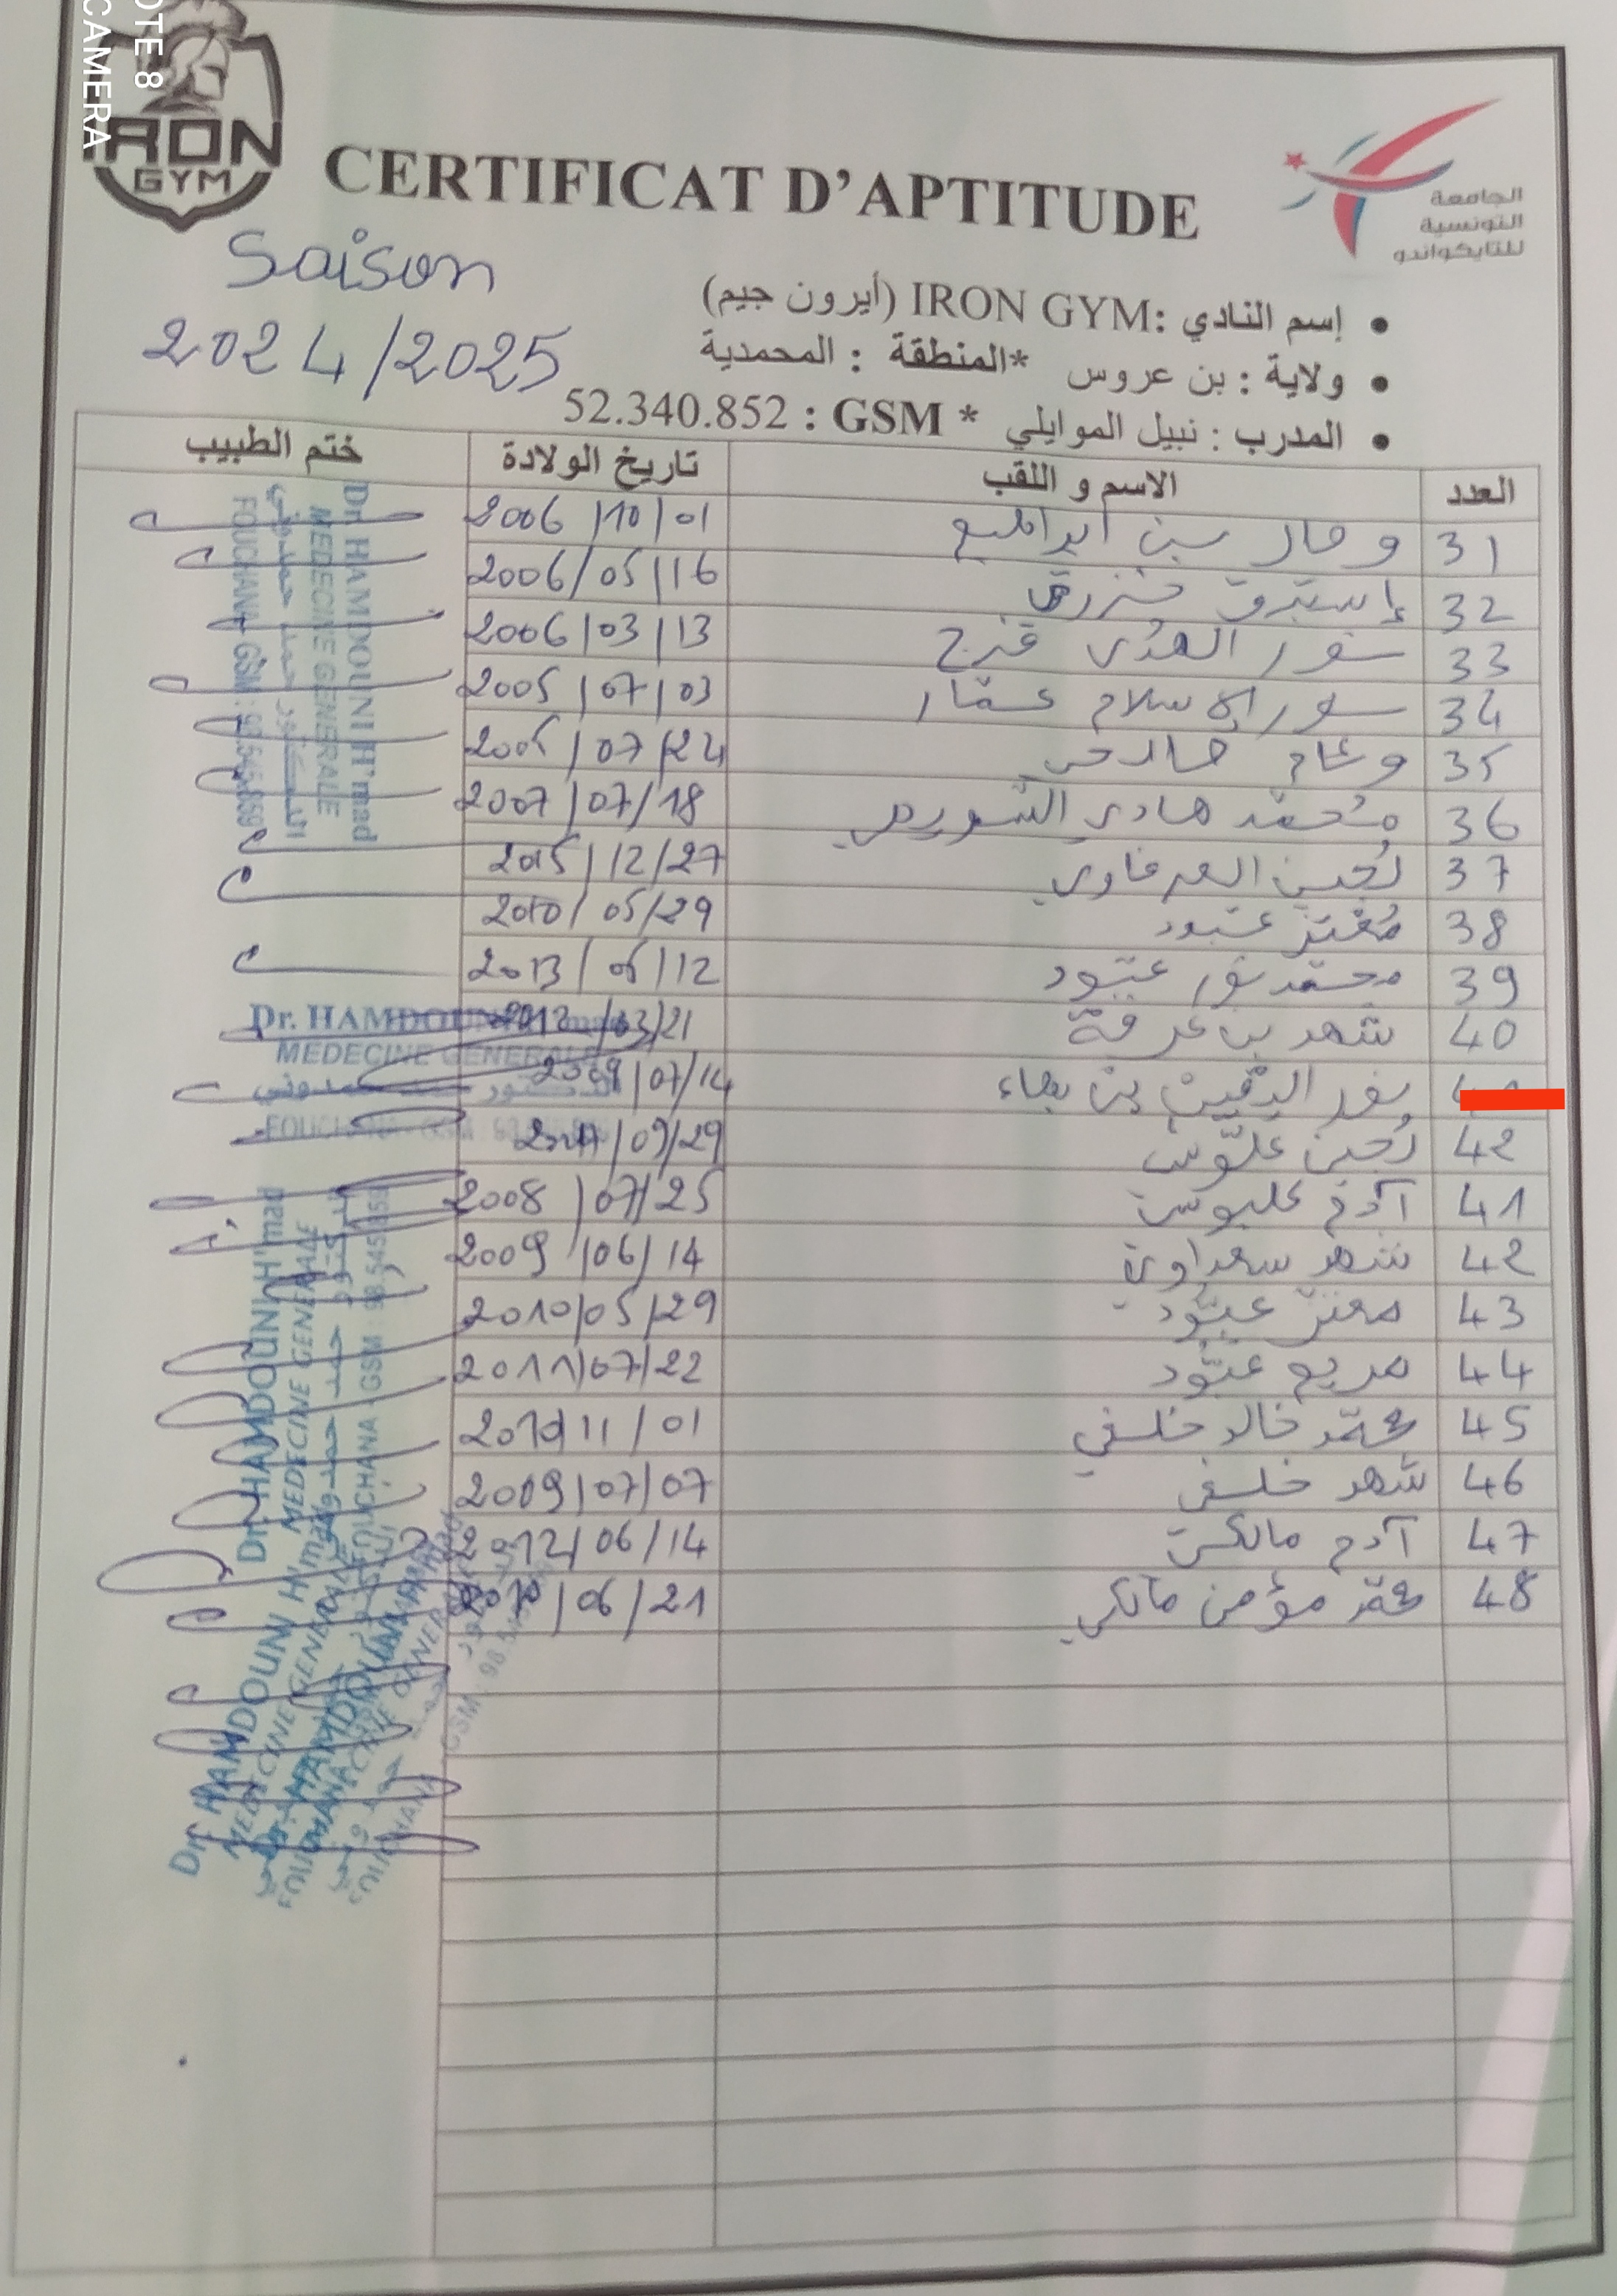 OTE 8
CAMERA
IRON
GYM
CERTIFICAT D'APTITUDE
الجامعة
التونسية
للتايكواندو
Saison
2024/2025
• إسم النادي :IRON GYM (أيرون جيم)
• ولاية : بن عروس *المنطقة : المحمدية
• المدرب : نبيل الموايلي * GSM : 52.340.852
العدد الاسم و اللقب تاريخ الولادة ختم الطبيب
31 بن ابراهيم 2006/10/01
32 إستبرق 2006/05/16
33 نور الهدى فرج 2006/03/13
34 نور الإسلام عمّار 2005/07/03
35 وئام صالحي 07/24
36 محمّد هادي 2007/07/18
37 لُجين العرفاوي 2015/12/27
38 مُعتز عبّود 2010/05/29
39 محمّد نور عبّود 2013/ /12
40 شهد بن عرفة 2012/03/21
نور اليقين بن بهاء 2009/07/14
42 لُجين علّوش /09/29
41 آدم 2008/07/25
42 شهد سعداوي 2009/06/14
43 معتزّ عبّود 2010/05/29
44 مريم عبّود 2011/07/22
45 محمّد خالد خلفي 2010/11/01
46 شهد خلفي 2009/07/07
47 آدم مالكي 2012/06/14
48 محمّد مؤمن مالكي /06/21
Dr. HAMDOUNI H'mad
MEDECINE GENERALE
الدكتور حمد حمدوني
FOUCHANA - GSM : 98.545.859
Dr. HAMDOUNI H'mad
MEDECINE GENERALE
Dr. HAMDOUNI H'mad
MEDECINE GENERALE
FOUCHANA - GSM : 98.545.859
Dr. HAMDOUNI H'mad
MEDECINE GENERALE